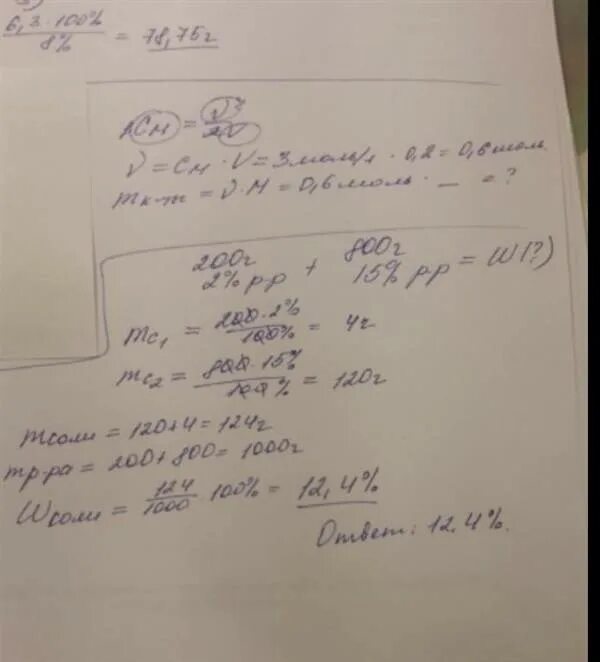 6,3 · 100% / 8% = 78,75г
Cм = ν / V
ν = Cм · V = 3 моль/л · 0,2 = 0,6 моль
mк-ты = ν · M = 0,6 моль · _ = ?
200г 2% р-р + 800г 15% р-р = W(?)
mc₁ = 200 · 2% / 100% = 4г
mc₂ = 800 · 15% / 100% = 120г
mсоли = 120 + 4 = 124г
mр-ра = 200 + 800 = 1000г
Wсоли = 124 / 1000 · 100% = 12,4%
Ответ: 12.4%.